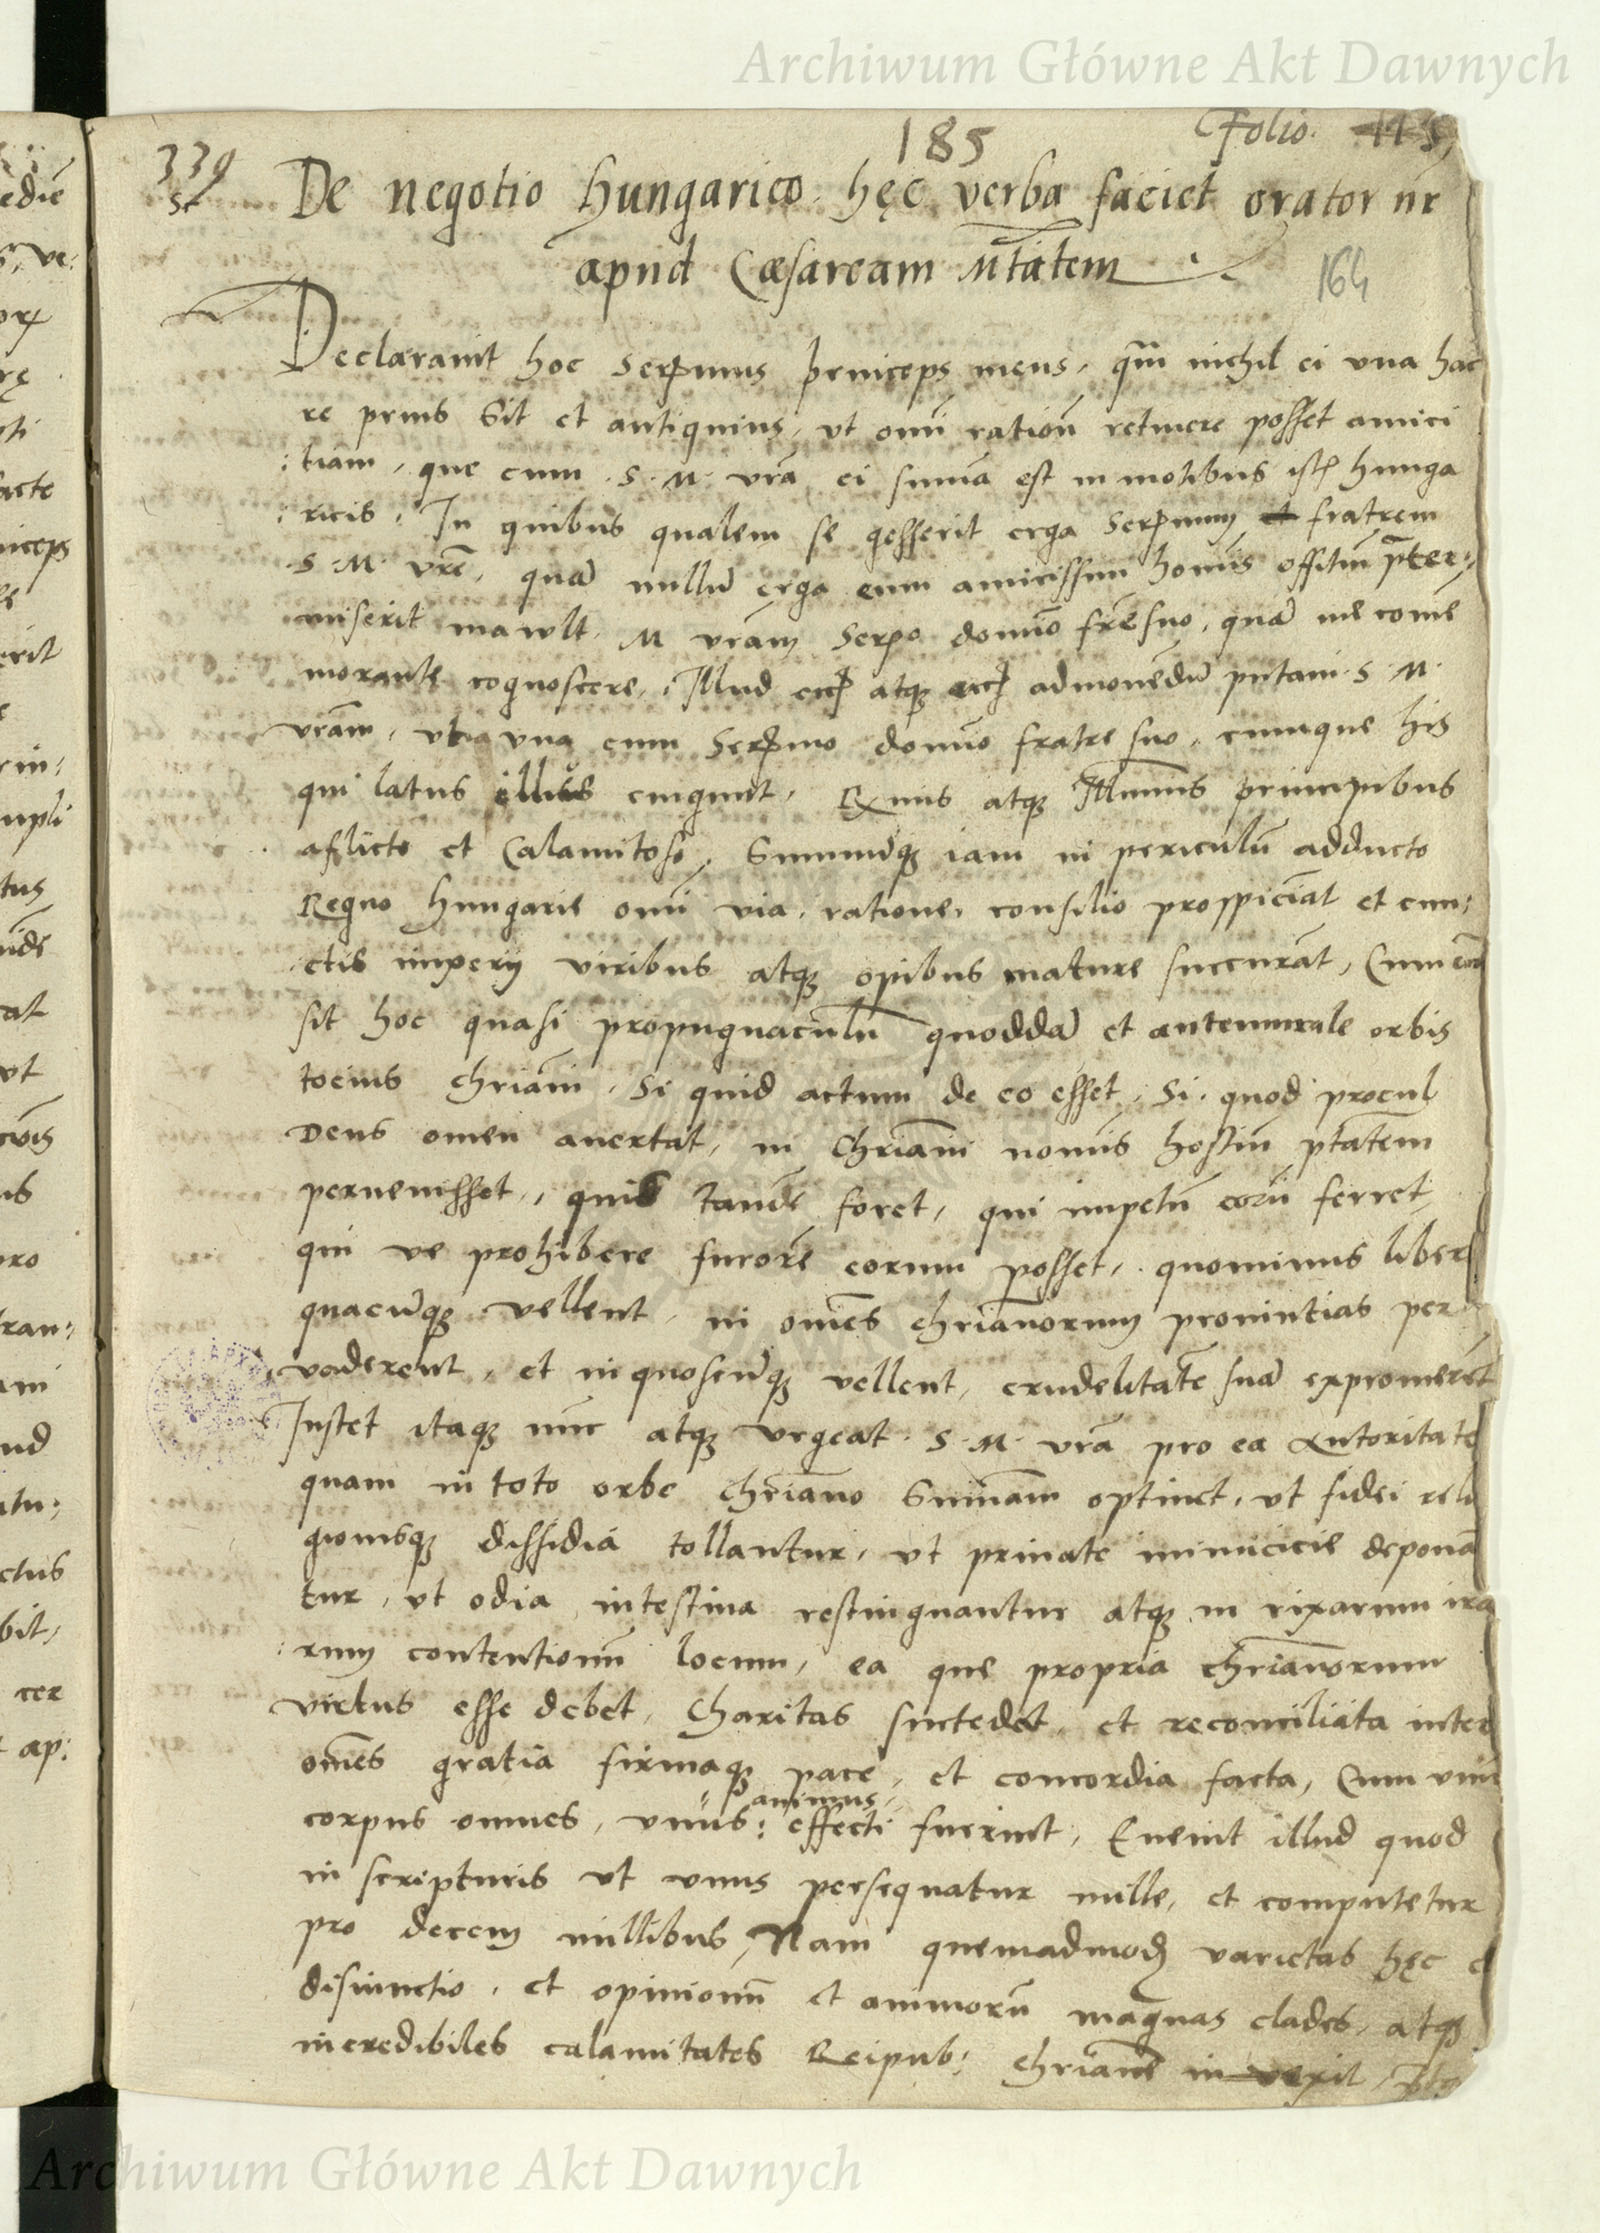 Archiwum Główne Akt Dawnych
185 Folio. 113
339
De negotio hungarico. hęc verba faciet orator nr
apud Cæsaream Mtatem
164
Declaravit hoc Sermus princeps meus, qm nichil ei vna hac
re prius sit et antiquius, vt omi ration retinere posset amici
tiam, que cum S. M. vra ei suma est in motibus istis hunga
ricis. In quibus qualem se gesserit erga Sermum fratrem
S. M. vre, qua nullu erga eum amicissimi hominis offitiu preter:
miserit mavult M vram Sermo domino fre suo, qua me come
morante cognoscere, Illud atq admonedu putavi S. M.
vram, vt vna cum Sermo domino fratre suo, cumque his
qui latus illius cingunt, Eximiis atq Illmis principibus
aflicto et Calamitoso, Sumuq iam in periculu adducto
Regno hungarie omi via, ratione, consilio prospiciat et cun:
ctis imperij viribus atq opibus mature succurat, Cum eni
sit hoc quasi propugnaculu quodda et antemurale orbis
tocius chriani, Si quid actum de eo esset, Si quod procul
Deus omen avertat, in Chriani nominis hostiu ptatem
pervenisset, quis tande foret, qui impetu eoru ferret,
qui ve prohibere furore eorum posset, quominus libere
quacuq vellent, in omes chrianorum provintias per
vaderent, et in quoscuq vellent, crudelitate sua expromeret
Instet itaq nunc atq vrgeat S. M. vra pro ea Autoritate
quam in toto orbe chriano Sumam optinet, vt fidei reli
gionisq dissidia tollantur, vt private inimicicie depona
tur, vt odia intestina restinguantur atq in rixarum ira
rum contentionu locum, ea que propria chrianorum
virtus esse debet, Charitas succedet, et reconciliata inter
omes gratia firmaq pace, et concordia facta, Cum vnu
animus
corpus omnes, vnus: effecti fuerint, Eveniet illud quod
in scripturis vt vnus persequatur mille, et computetur
pro decem millibus, Nam quemadmodu varietas hęc et
disiunctio, et opinionu et animoru magnas clades, atq
incredibiles calamitates Reipub: chriane invexit,
Archiwum Główne Akt Dawnych